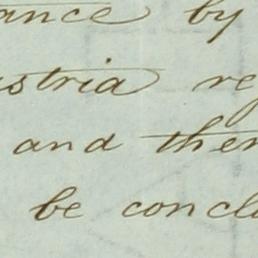 ance by
stria re
and then
be concl